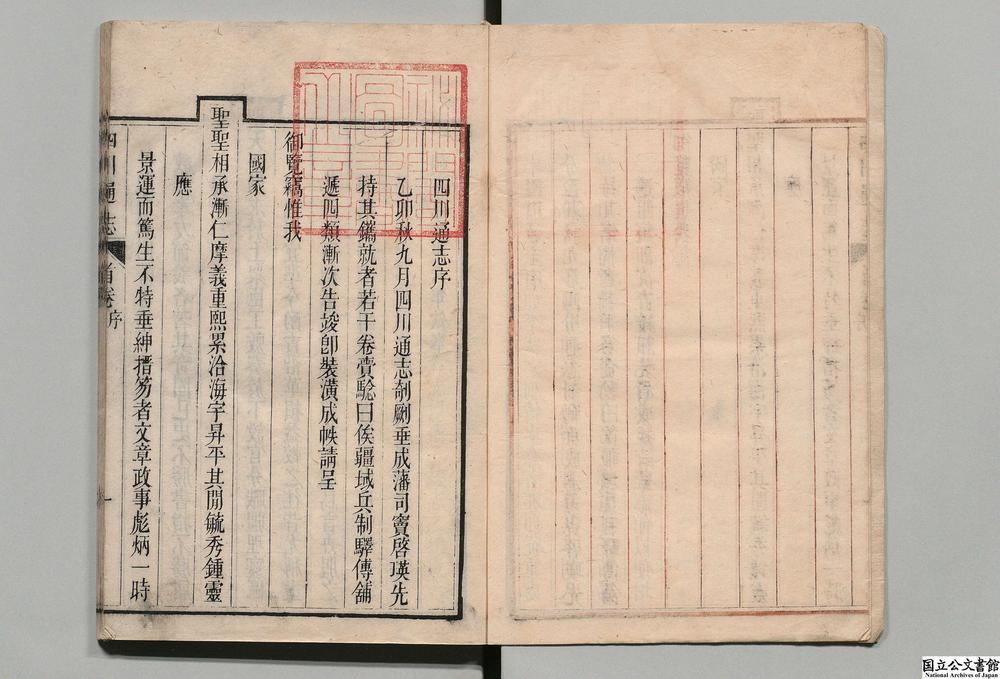 四川通志序
乙卯秋九月四川通志剞劂垂成藩司竇啓瑛先
持其鐫就者若干卷賫駼曰俟疆域兵制驛傳舖
遞四類漸次告竣卽裝潢成帙請呈
御覽竊惟我
國家
聖聖相承漸仁摩義重熙累洽海宇昇平其間毓秀鍾靈
應
景運而篤生不特垂紳搢笏者文章政事彪炳一時
四川通志
首卷
序
一
国立公文書館
National Archives of Japan